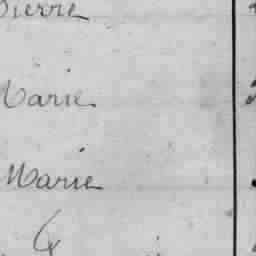 Pierre
Marie
Marie